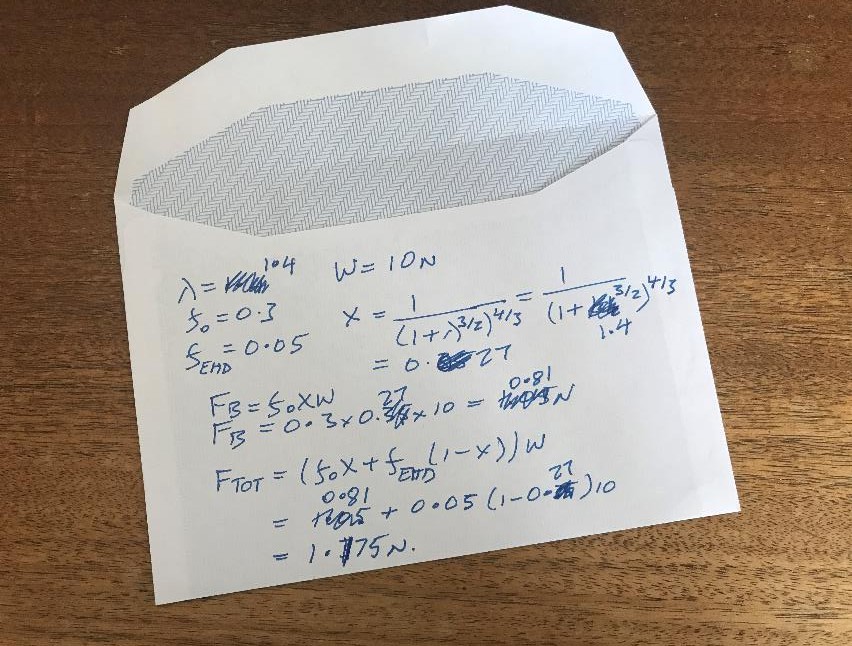 λ = 1.4 W = 10N
f₀ = 0.3 X = 1/(1+λ^3/2)^4/3 = 1/(1+1.4^3/2)^4/3
f_EHD = 0.05 = 0.27
F_B = f₀XW
F_B = 0.3 x 0.27 x 10 = 0.81 N
F_TOT = (f₀X + f_EHD(1-X))W
= 0.81 + 0.05(1-0.27)10
= 1.175N.